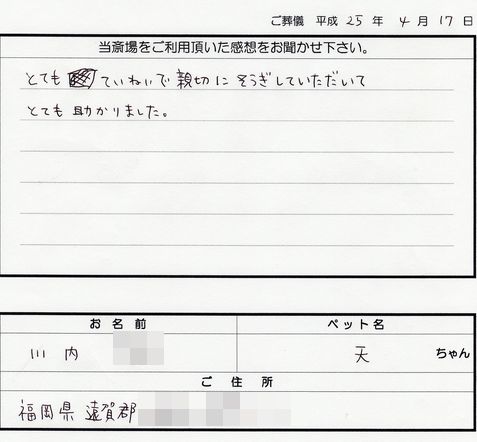 ご葬儀 平成 25 年 4 月 17 日
当斎場をご利用頂いた感想をお聞かせ下さい。
とても ていねいで 親切に そうぎしていただいて
とても 助かりました。
お 名 前
ペット名
川 内
天 ちゃん
ご 住 所
福岡県 遠賀郡